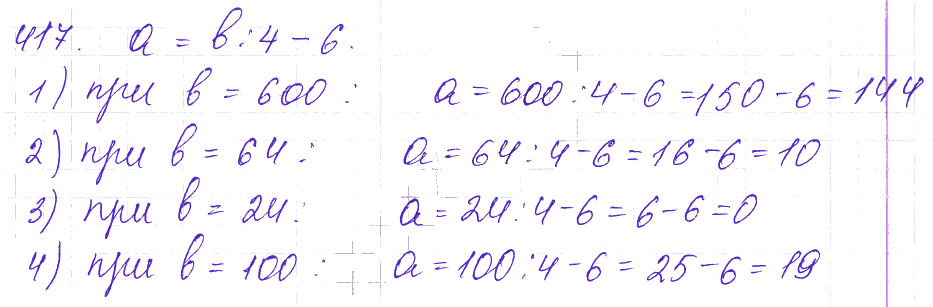 417. a = b : 4 - 6.
1) при b = 600 : a = 600 : 4 - 6 = 150 - 6 = 144
2) при b = 64 : a = 64 : 4 - 6 = 16 - 6 = 10
3) при b = 24 : a = 24 : 4 - 6 = 6 - 6 = 0
4) при b = 100 : a = 100 : 4 - 6 = 25 - 6 = 19